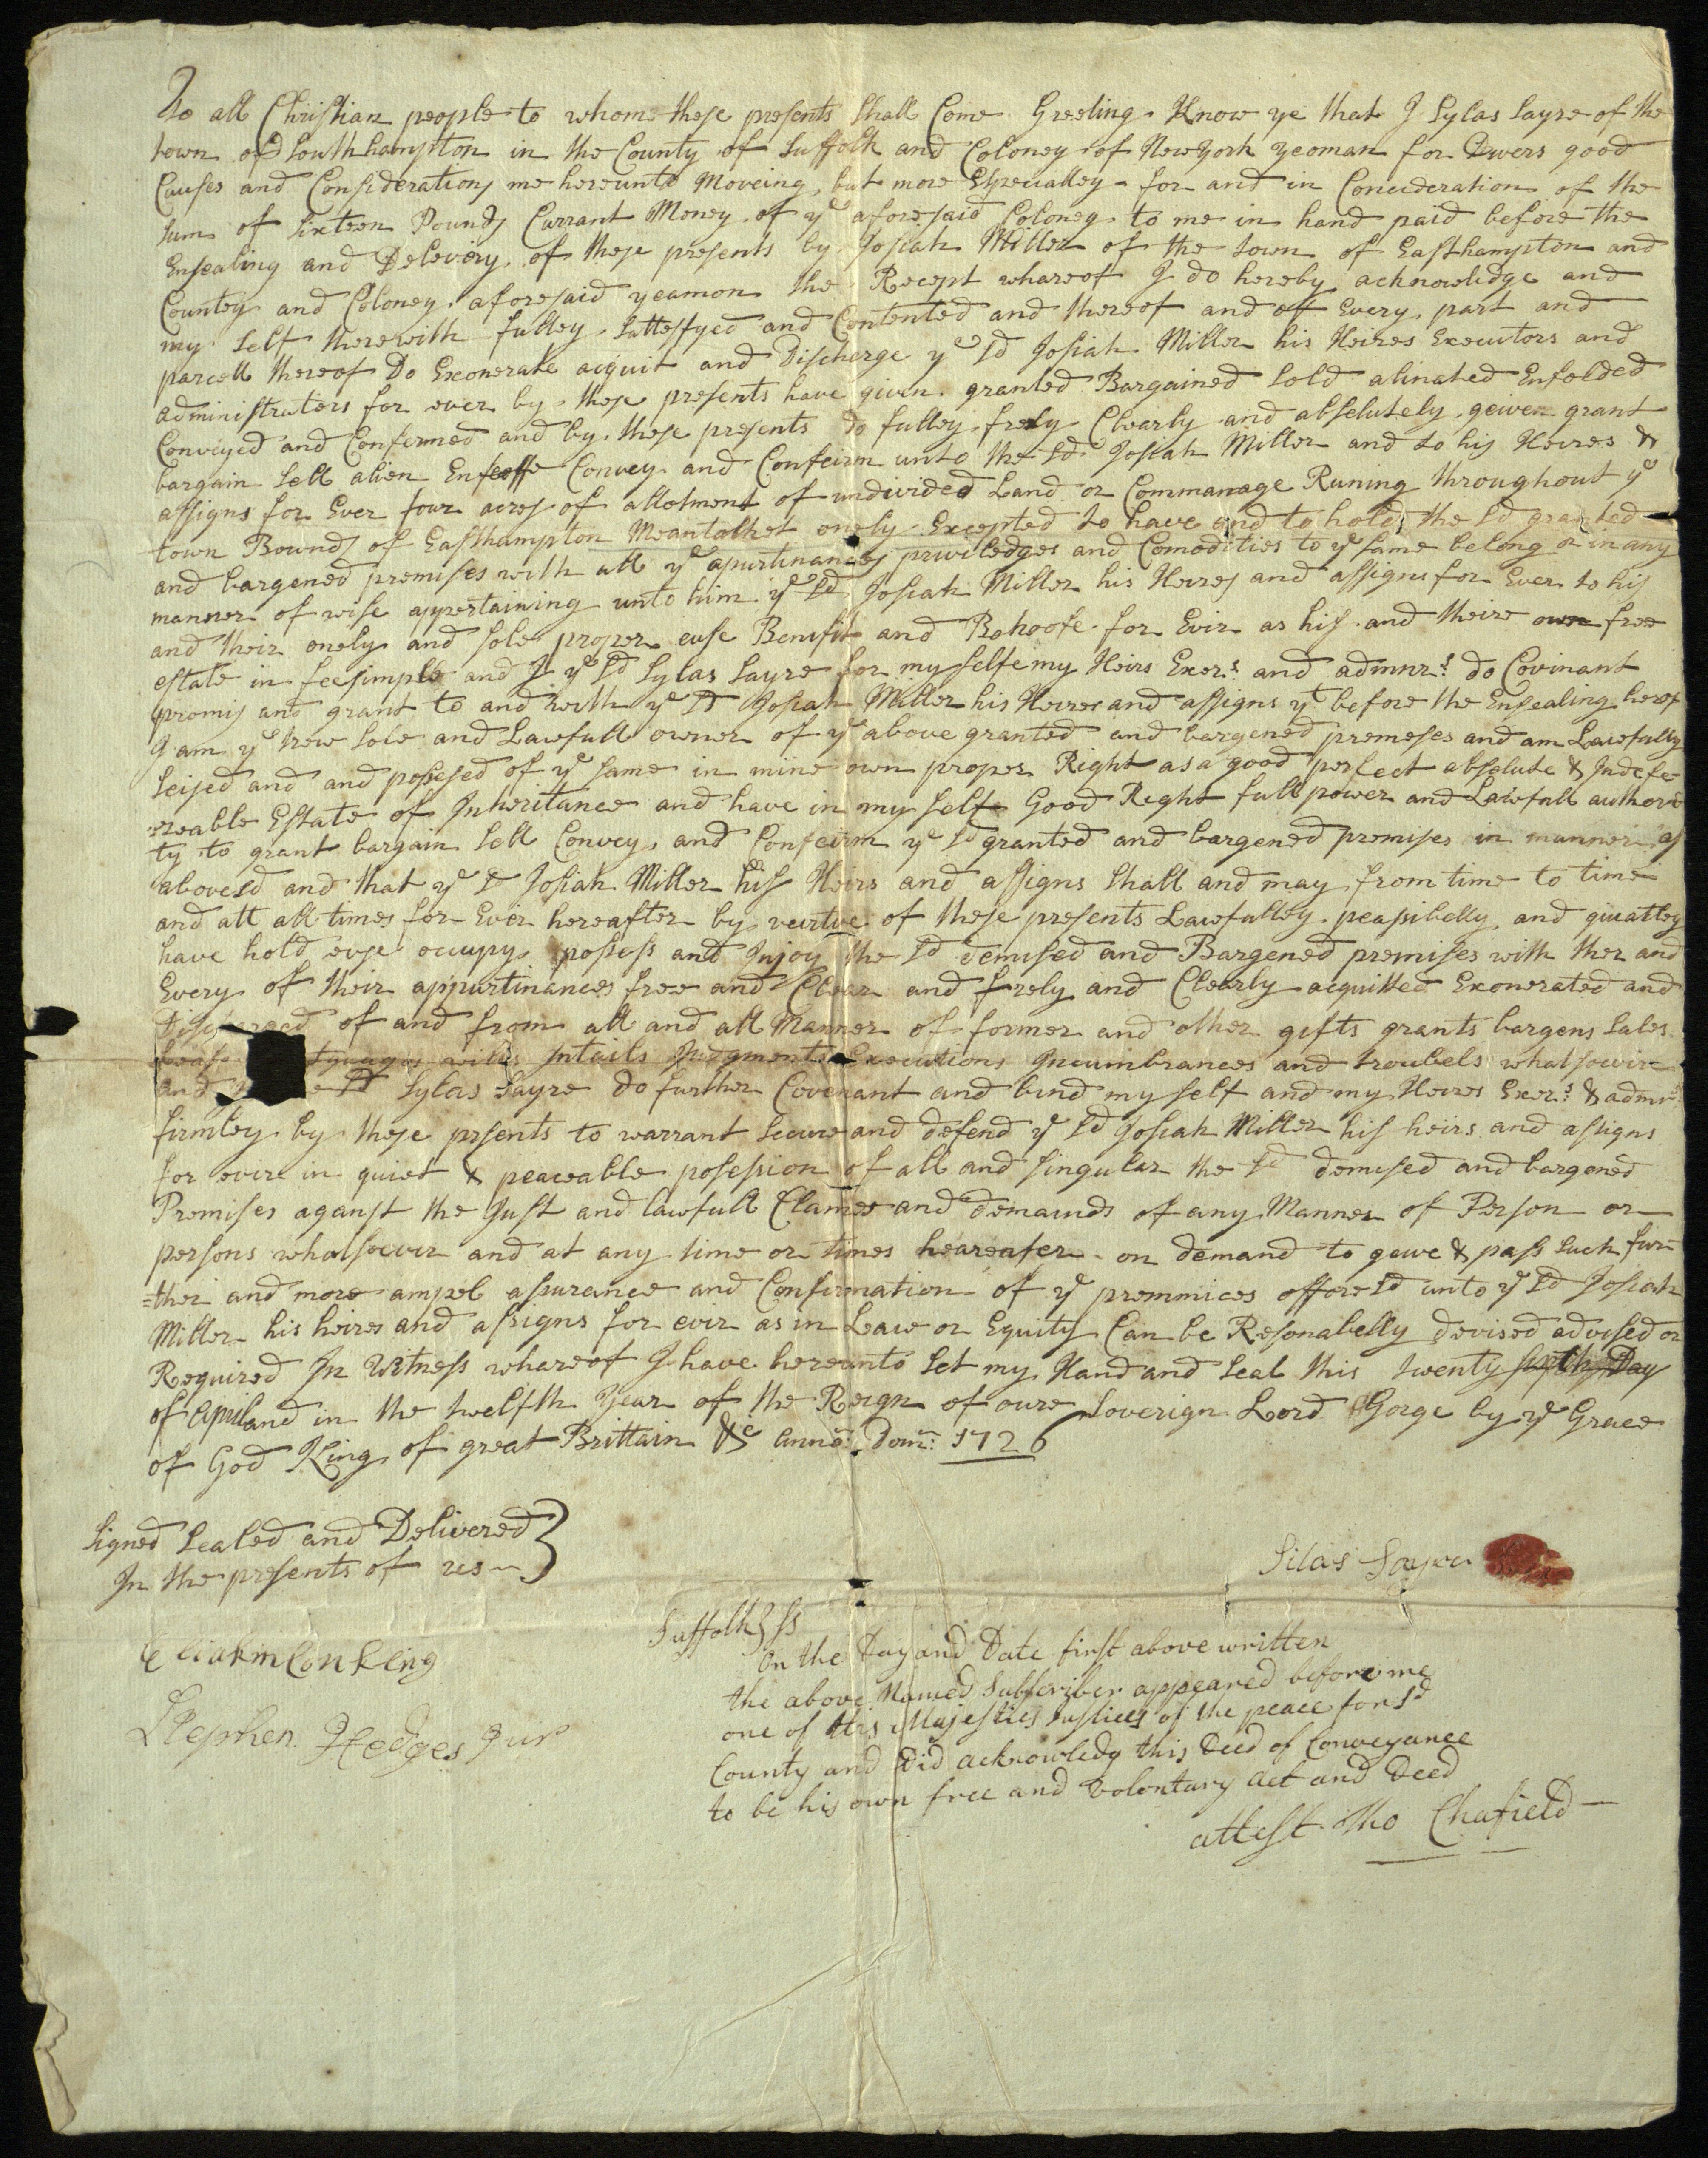 To all Christian people to whome these presents Shall Come Greeting Know ye that I Sylas Sayre of the
town of Southhampton in the County of Suffolk and Coloney of New York yeoman for Divers good
Causes and Considerations me hereunto Moveing but more Especialley for and in Concideration of the
Sum of Sixteen Pounds Currant Money of ye aforesaid Coloney to me in hand paid before the
Ensealing and Delevery of these presents by Josiah Miller of the town of Easthampton and
Countey and Coloney aforesaid yeamon the Recept whareof I do hereby acknowledge and
my Self therewith fulley Sattesfyed and Contented and thereof and off Every part and
parcell thereof Do Exonerate acquit and Discherge ye Sd Josiah Miller his Heires Executors and
administrators for ever by these presents have given granted Bargained Sold alinated Enfolded
Conveyed and Confermed and by these presents do fulley frely Clearly and absolutely geiven grant
bargain Sell alien Enfeoffe Convey and Confeirm unto the Sd Josiah Miller and to his Heires &
assigns for Ever four acres of allotment of undivided Land or Commanage Runing throughout ye
town Bounds of Easthampton Meantalket onely Excepted to have and to hold the Sd granted
and bargened premises with all ye apurtinances priviledges and Comodities to ye Same belong or in any
manner of wise appertaining unto him ye Sd Josiah Miller his Heires and assigns for Ever to his
and their onely and sole proper euse Benifit and Behoofe for Evir as his and theire own free
estate in feesimple and I ye Sd Sylas Sayre for my selfe my Heirs Exers and admnrs do Covinant
promis and grant to and with ye Sd Josiah Miller his Heires and assigns yt before the Ensealing hereof
I am ye trew Sole and Lawfull owner of ye above granted and bargened premeses and am Lawfully
Seised and and posesed of ye same in mine own proper Right as a good perfect absolute & Indefe
=zeable Estate of Inheritance and have in my selfe Good Reght full power and Lawfull authori
ty to grant bargain Sell Convey and Confeirm ye Sd granted and bargened premises in manner as
abovesd and that ye Sd Josiah Miller his Heirs and assigns Shall and may from time to time
and att all times for Ever hereafter by veirtue of these presents Lawfulley peasibelly and quiatley
have hold euse occupy posess and Injoy the Sd demised and Bargened premises with ther and
Every of their appurtinances free and Clear and frely and Clearly acquitted Exonerated and
Discharged of and from all and all Manner of former and other gifts grants bargens Sales
wills Intails Judgments Executions Incumbrances and troubels whatsoevir
and Sd Sylas Sayre do further Covenant and bind my self and my Heires Exers & admrs
firmley by these prsents to warrant Secure and defend ye Sd Josiah Miller his heirs and assigns
for evire in quiet & peaceable posession of all and singular the Sd demised and bargened
Premises aganst the Just and lawfull Clames and demainds of any Manner of Person or
persons whatsoevir and at any time or times heareafer on demand to geive & pass Such fur
=ther and more ampel asurance and Confirmation of ye premmices afforesd unto ye Sd Josiah
Miller his heires and assigns for evir as in Law or Equity Can be Resonabelly devised advised or
Required In Witness whareof I have hereunto Set my Hand and Seal this twenty Day
of April and in the twelfth Year of the Reign of oure Soverign Lord Gorge by ye Grace
of God King of great Brittain &c Anno: Dom: 1726
Signed Sealed and Delivered
In the presents of us
Silas Sayre
Eliakim Conkling
Stephen Hedges Jur
Suffolk ss
On the Day and Date first above written
the above Named Subscriber appeared before me
one of His Majesties Justices of the peace for Sd
County and Did acknowledg this Deed of Conveyance
to be his own free and Volontary act and Deed
attest Tho Chafield